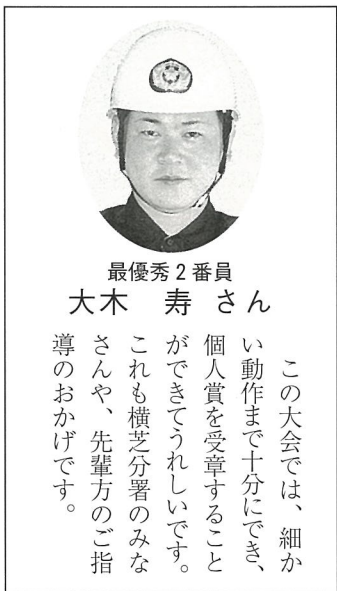 最優秀2番員
大木 寿 さん
この大会では、細か
い動作まで十分にでき、
個人賞を受章すること
ができてうれしいです。
これも横芝分署のみな
さんや、先輩方のご指
導のおかげです。